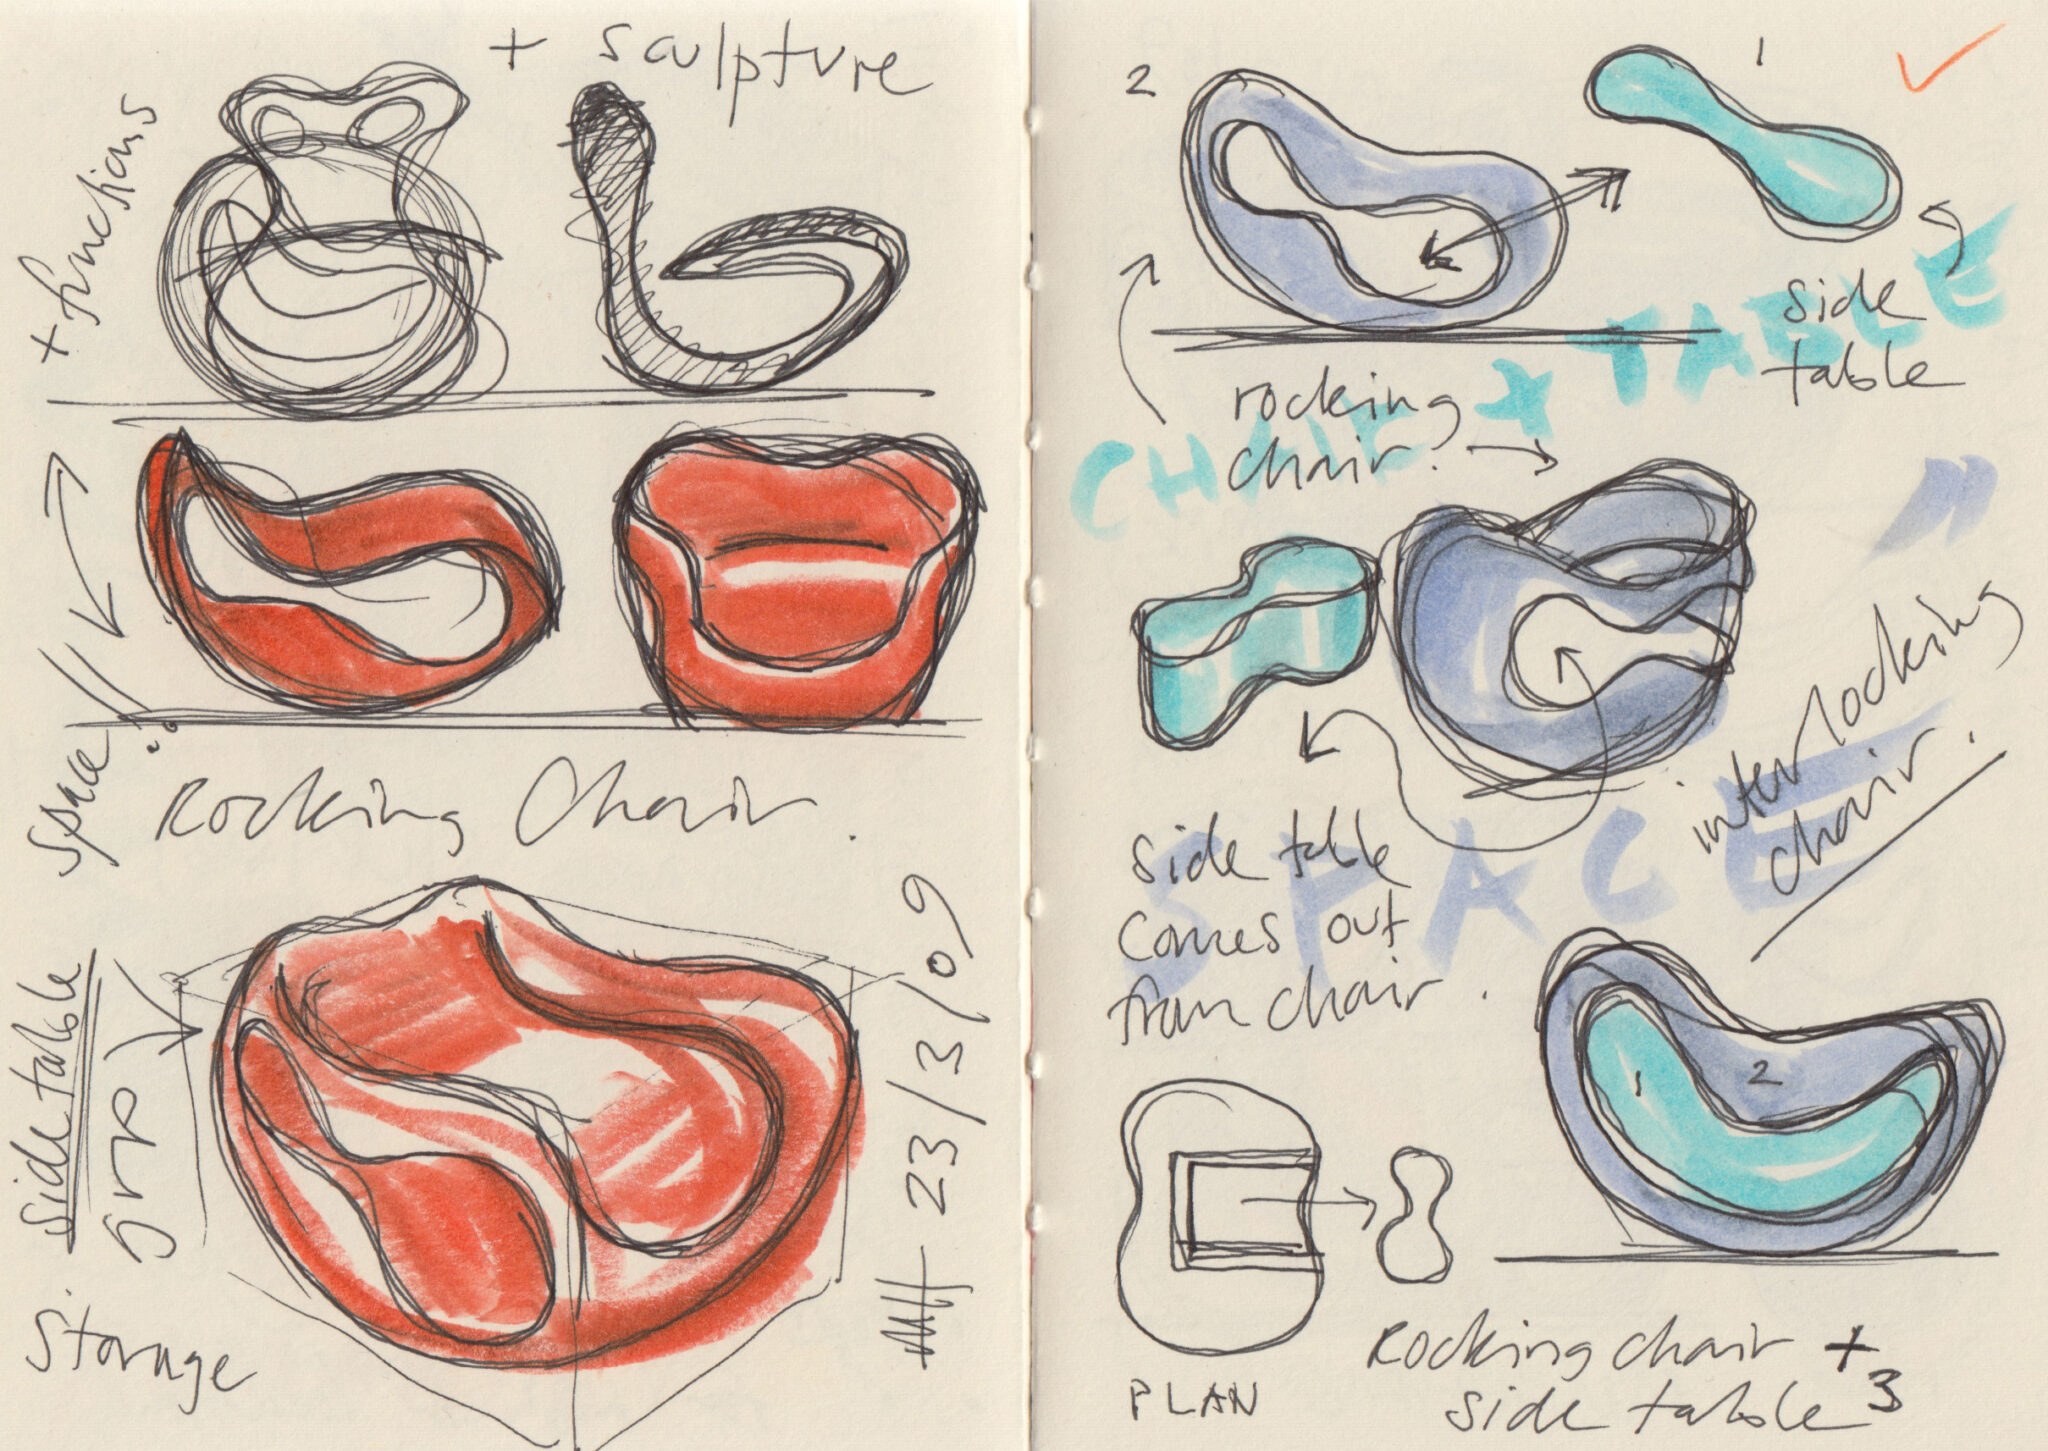 + sculpture
+ functions
space!!
Rocking Chair.
side table
grp
Storage
23/3/09
2
1
side
table
rocking
chair?
CHAIR + TABLE
interlocking
chair.
side table
comes out
from chair.
SPACE
1
2
PLAN
Rocking chair +
side table 3